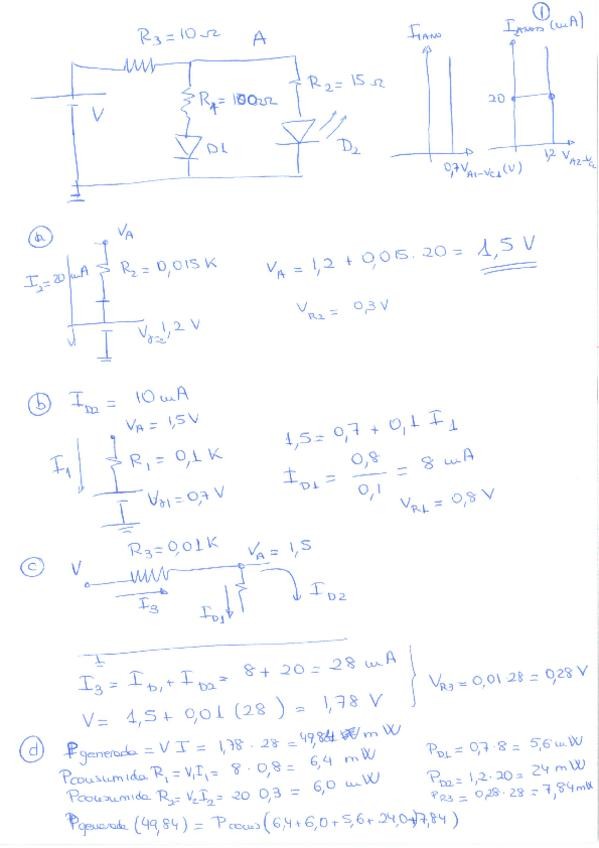 ①
R3 = 10 Ω
A
R2 = 15 Ω
R1 = 100Ω
V
D1
D2
I1ANO
0,7 VA1-VC1 (V)
(mA)
20
1,2 VA2-VC2
ⓐ
VA
I2 = 20 mA
R2 = 0,015 K
Vγ2=1,2 V
VA = 1,2 + 0,015 · 20 = 1,5 V
VR2 = 0,3 V
ⓑ ID2 = 10 mA
VA = 1,5 V
I1
R1 = 0,1 K
Vγ1 = 0,7 V
1,5 = 0,7 + 0,1 I1
ID1 = 0,8 / 0,1 = 8 mA
VR1 = 0,8 V
ⓒ
R3 = 0,01K
V
VA = 1,5
I3
ID1
ID2
I3 = ID1 + ID2 = 8 + 20 = 28 mA
V = 1,5 + 0,01 (28) = 1,78 V
VR3 = 0,01 28 = 0,28 V
ⓓ Pgenerada = V I = 1,78 · 28 = 49,84 mW
Pcousumida R1 = V1I1 = 8 · 0,8 = 6,4 mW
Pcousumida R2 = V2 I2 = 20 0,3 = 6,0 mW
PD1 = 0,7 · 8 = 5,6 mW
PD2 = 1,2 · 20 = 24 mW
PR3 = 0,28 · 28 = 7,84 mW
Pgenerada (49,84) = Pcous (6,4 + 6,0 + 5,6 + 24,0 + 7,84)